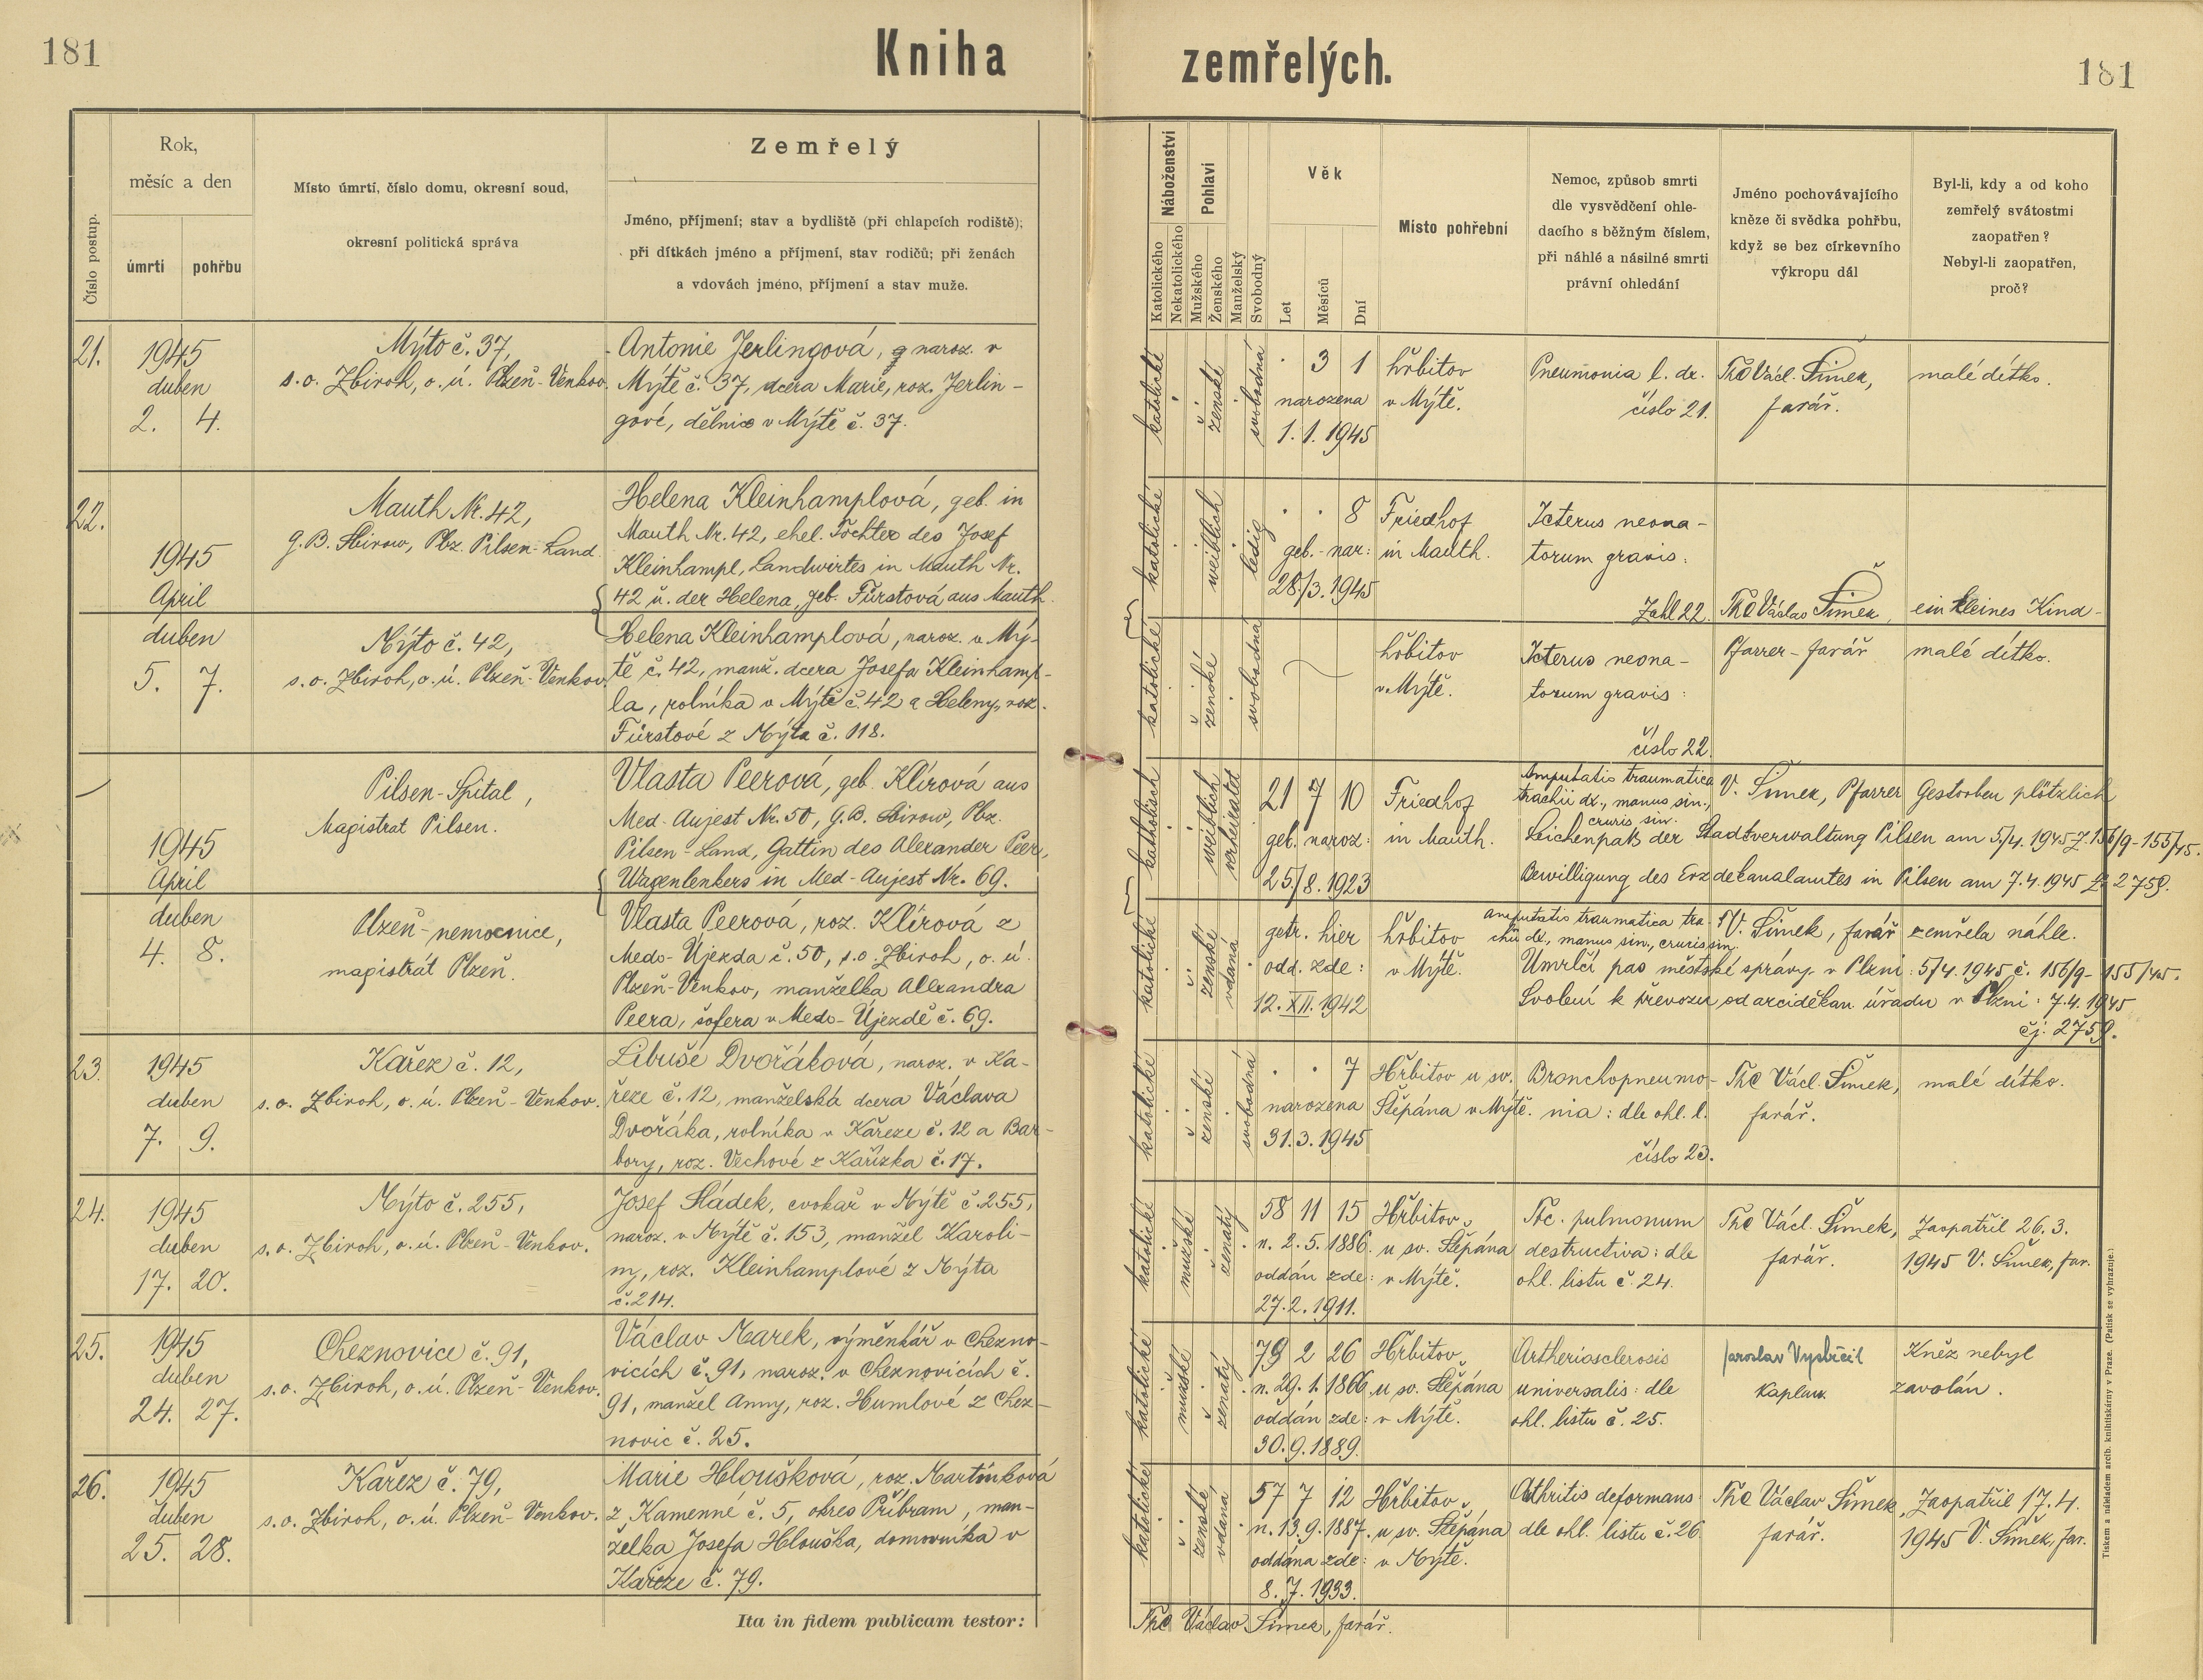 181
Kniha zemřelých.
181
Číslo postup.
Rok,
měsíc a den
úmrtí
pohřbu
Místo úmrtí, číslo domu, okresní soud,
okresní politická správa
Zemřelý
Jméno, příjmení; stav a bydliště (při chlapcích rodiště);
při dítkách jméno a příjmení, stav rodičů; při ženách
a vdovách jméno, příjmení a stav muže.
Náboženství
Katolického
Nekatolického
Pohlaví
Mužského
Ženského
Manželský
Svobodný
Věk
Let
Měsíců
Dní
Místo pohřební
Nemoc, způsob smrti
dle vysvědčení ohle-
dacího s běžným číslem,
při náhlé a násilné smrti
právní ohledání
Jméno pochovávajícího
kněze či svědka pohřbu,
když se bez církevního
výkropu dál
Byl-li, kdy a od koho
zemřelý svátostmi
zaopatřen?
Nebyl-li zaopatřen,
proč?
21.
1945
duben
2. 4.
Mýto č. 37,
s.o. Zbiroh, o.ú. Plzeň-Venkov.
Antonie Jerlingová, naroz. v
Mýtě č. 37, dcera Marie, roz. Jerlin-
gové, dělnice v Mýtě č. 37.
katolické
ženské
svobodná
3 1
narozena
1. 1. 1945
hřbitov
v Mýtě.
Pneumonia l. dx.
číslo 21.
ThC Václ. Šimek,
farář.
malé dítko.
22.
1945
April
duben
5. 7.
Mauth Nr. 42,
G.B. Sbirow, Pbz. Pilsen-Land
Helena Kleinhamplová, geb. in
Mauth Nr. 42, ehel. Tochter des Josef
Kleinhampl, Landwirtes in Mauth Nr.
42 u. der Helena, geb. Fürstová aus Mauth.
katolické
weiblich
ledig
8
geb.-nar:
28./3. 1945
Friedhof
in Mauth.
Icterus neona-
torum gravis:
Zahl 22.
ThC Václav Šimek,
ein kleines Kind-
Mýto č. 42,
s.o. Zbiroh, o.ú. Plzeň-Venkov.
Helena Kleinhamplová, naroz. v Mý-
tě č. 42, manž. dcera Josefa Kleinhamp-
la, rolníka v Mýtě č. 42 a Heleny, roz.
Fürstové z Mýta č. 118.
katolické
ženské
svobodná
hřbitov
v Mýtě.
Icterus neona-
torum gravis:
číslo 22.
Pfarrer-farář
malé dítko.
1945
April
duben
4. 8.
Pilsen-Spital,
Magistrat Pilsen.
Vlasta Peerová, geb. Klírová aus
Med-Aujest Nr. 50, G.B. Sbirow, Pbz.
Pilsen-Land, Gattin des Alexander Peer,
Wagenlenkers in Med-Aujest Nr. 69.
katholisch
weiblich
verheiratet
21 7 10
geb. naroz:
25./8. 1923
Friedhof
in Mauth.
Amputatis traumatica
trachii dx., manus sin.,
cruris sin.
V. Šimek, Pfarrer
Gestorben plötzlich
Leichenpaß der Stadtverwaltung Pilsen am 5./4. 1945 Z. 156/9-155/45.
Bewilligung des Erzdekanalamtes in Pilsen am 7.4. 1945 Z. 2759.
Plzeň-nemocnice,
magistrát Plzeň.
Vlasta Peerová, roz. Klírová z
Medo-Újezda č. 50, s.o. Zbiroh, o.ú.
Plzeň-Venkov, manželka Alexandra
Peera, šofera v Medo-Újezdě č. 69.
katolické
ženské
vdaná
getr. hier
odd. zde:
12. XII. 1942
hřbitov
v Mýtě.
Amputatis traumatica tra-
chii dx., manus sin., cruris sin.
V. Šimek, farář
zemřela náhle.
Úmrlčí pas městské správy v Plzni: 5/4. 1945 č. 156/9-155/45.
Svolení k převozu od arciděkan. úřadu v Plzni: 7.4. 1945
čj. 2759.
23.
1945
duben
7. 9.
Kařez č. 12,
s.o. Zbiroh, o.ú. Plzeň-Venkov.
Libuše Dvořáková, naroz. v Ka-
řeze č. 12, manželská dcera Václava
Dvořáka, rolníka v Kařeze č. 12 a Bar-
bory, roz. Vechové z Kařízka č. 17.
katolické
ženské
svobodná
7
narozena
31. 3. 1945
Hřbitov u sv.
Štěpána v Mýtě.
Bronchopneumo-
nia: dle ohl. l.
číslo 23.
ThC Václ. Šimek,
farář.
malé dítko.
24.
1945
duben
17. 20.
Mýto č. 255,
s.o. Zbiroh, o.ú. Plzeň-Venkov.
Josef Sládek, cvokař v Mýtě č. 255,
naroz. v Mýtě č. 153, manžel Karoli-
ny, roz. Kleinhamplové z Mýta
č. 214.
katolické
mužské
ženatý
58 11 15
n. 2. 5. 1886.
oddán zde:
27. 2. 1911.
Hřbitov
u sv. Štěpána
v Mýtě.
Tbc. pulmonum
destructiva: dle
ohl. listu č. 24.
ThC Václ. Šimek,
farář.
Zaopatřil 26. 3.
1945 V. Šimek, far.
25.
1945
duben
24. 27.
Cheznovice č. 91,
s.o. Zbiroh, o.ú. Plzeň-Venkov.
Václav Marek, výměnkář v Chezno-
vicích č. 91, naroz. v Cheznovicích č.
91, manžel Anny, roz. Humlové z Chez-
novic č. 25.
katolické
mužské
ženatý
79 2 26
n. 29. 1. 1866
oddán zde:
30. 9. 1889.
Hřbitov
u sv. Štěpána
v Mýtě.
Artheriosclerosis
universalis: dle
ohl. listu č. 25.
Jaroslav Vystrčil
kaplan.
Kněz nebyl
zavolán.
26.
1945
duben
25. 28.
Kařez č. 79,
s.o. Zbiroh, o.ú. Plzeň-Venkov.
Marie Hloušková, roz. Martínková
z Kamenné č. 5, okres Příbram, man-
želka Josefa Hlouška, domovníka v
Kařeze č. 79.
katolické
ženské
vdaná
57 7 12
n. 13. 9. 1887.
oddána zde:
8. 7. 1933.
Hřbitov
u sv. Štěpána
v Mýtě.
Athritis deformans
dle ohl. listu č. 26
ThC Václav Šimek,
farář.
Zaopatřil 17. 4.
1945 V. Šimek, far.
Ita in fidem publicam testor:
ThC Václav Šimek, farář.
Tiskem a nákladem arcib. knihtiskárny v Praze. (Patisk se vyhrazuje.)